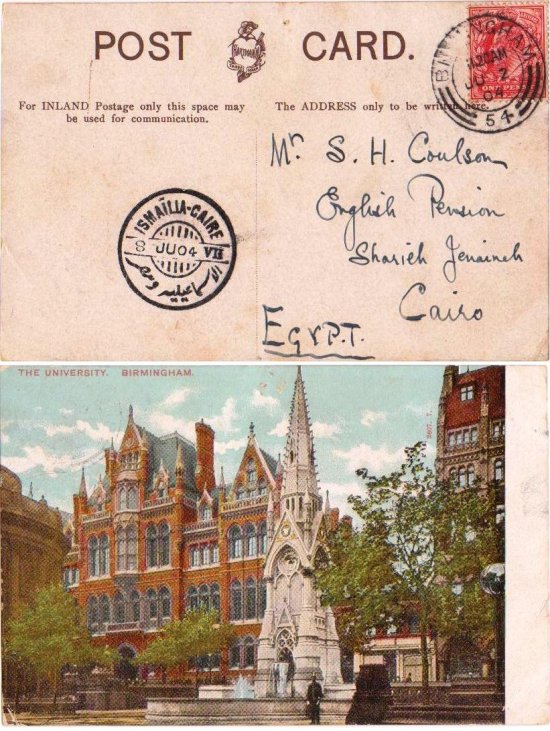 POST CARD.
For INLAND Postage only this space may
be used for communication.
The ADDRESS only to be written here.
BIRMINGHAM
JU 2
04
54
ONE PENNY
Mr S. H. Coulson
English Pension
Sharieh Jenaineh
Cairo
EGYPT.
ISMAÏLIA-CAIRE
8 JU04 VII
الاسماعيلية ومصر
THE UNIVERSITY. BIRMINGHAM.